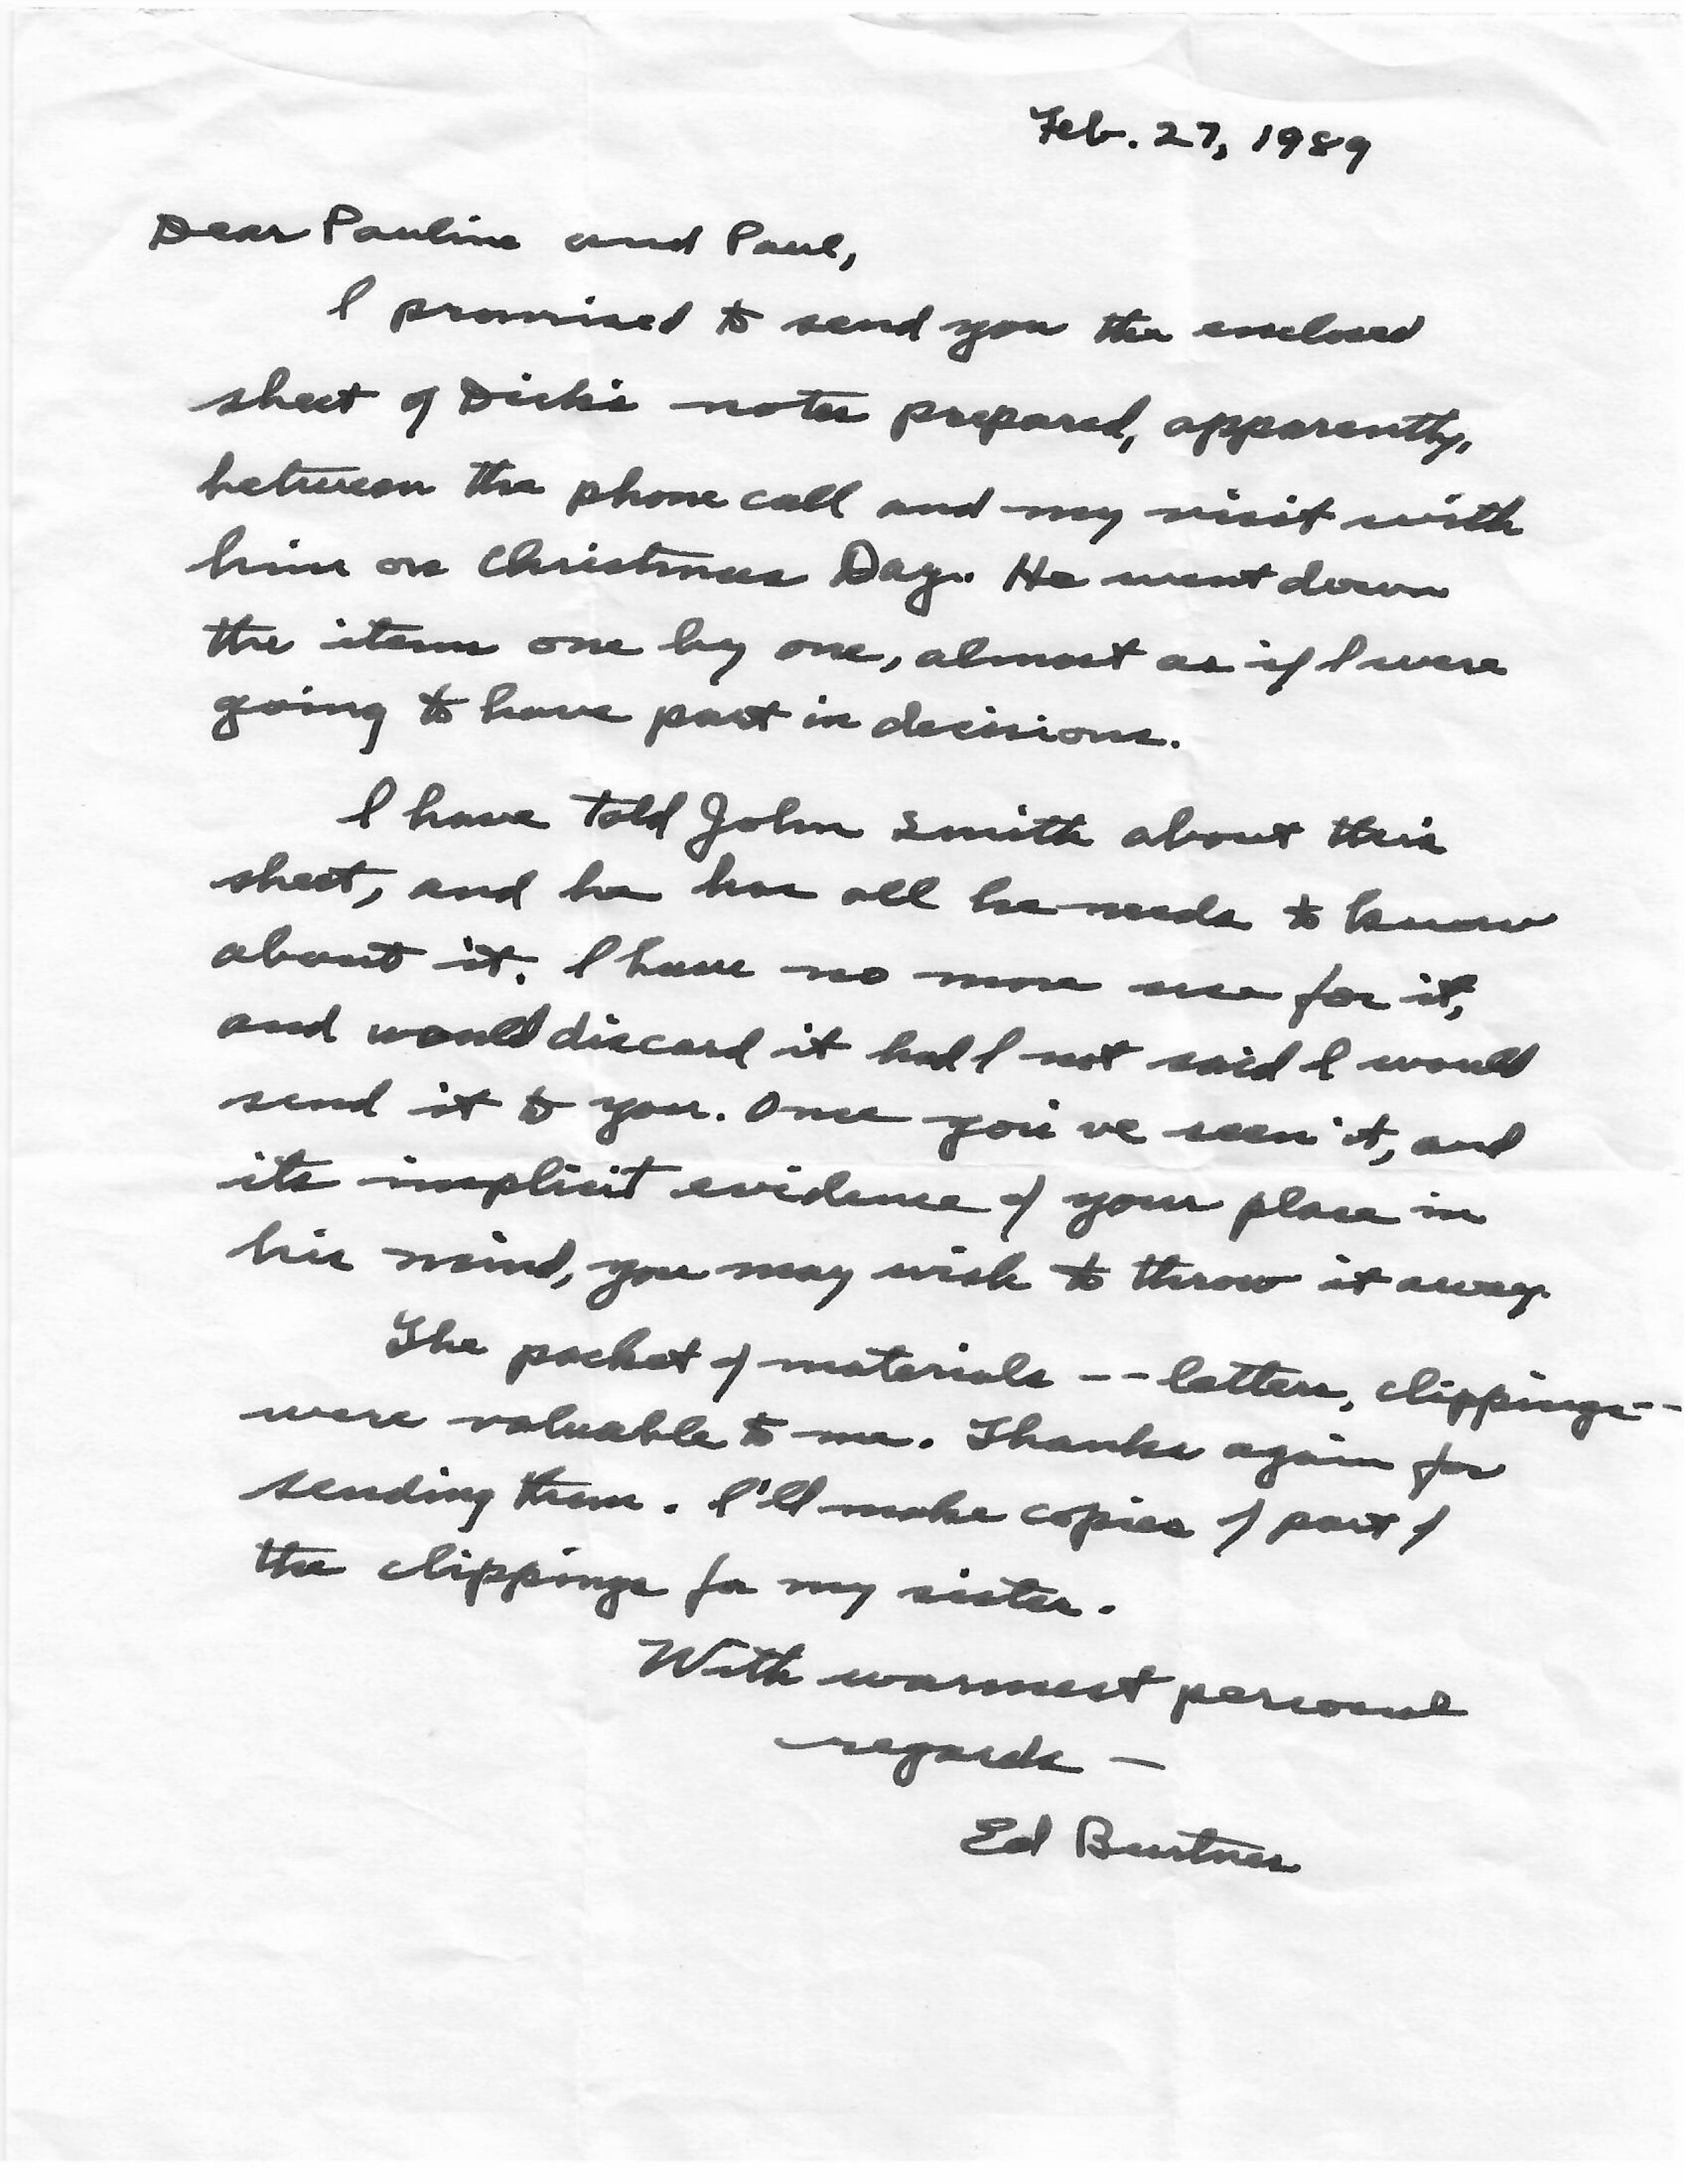 Feb. 27, 1989
Dear Pauline and Paul,
I promised to send you the enclosed
sheet of Dick's notes prepared, apparently,
between the phone call and my visit with
him on Christmas Day. He went down
the items one by one, almost as if I were
going to have part in decisions.
I have told John Smith about this
sheet, and he has all he needs to know
about it. I have no more use for it,
and would discard it had I not said I would
send it to you. Once you've seen it, and
its implicit evidence of your place in
his mind, you may wish to throw it away.
The packet of materials -- letters, clippings --
were valuable to me. Thanks again for
sending them. I'll make copies of part of
the clippings for my sister.
With warmest personal
regards —
Ed Burtner